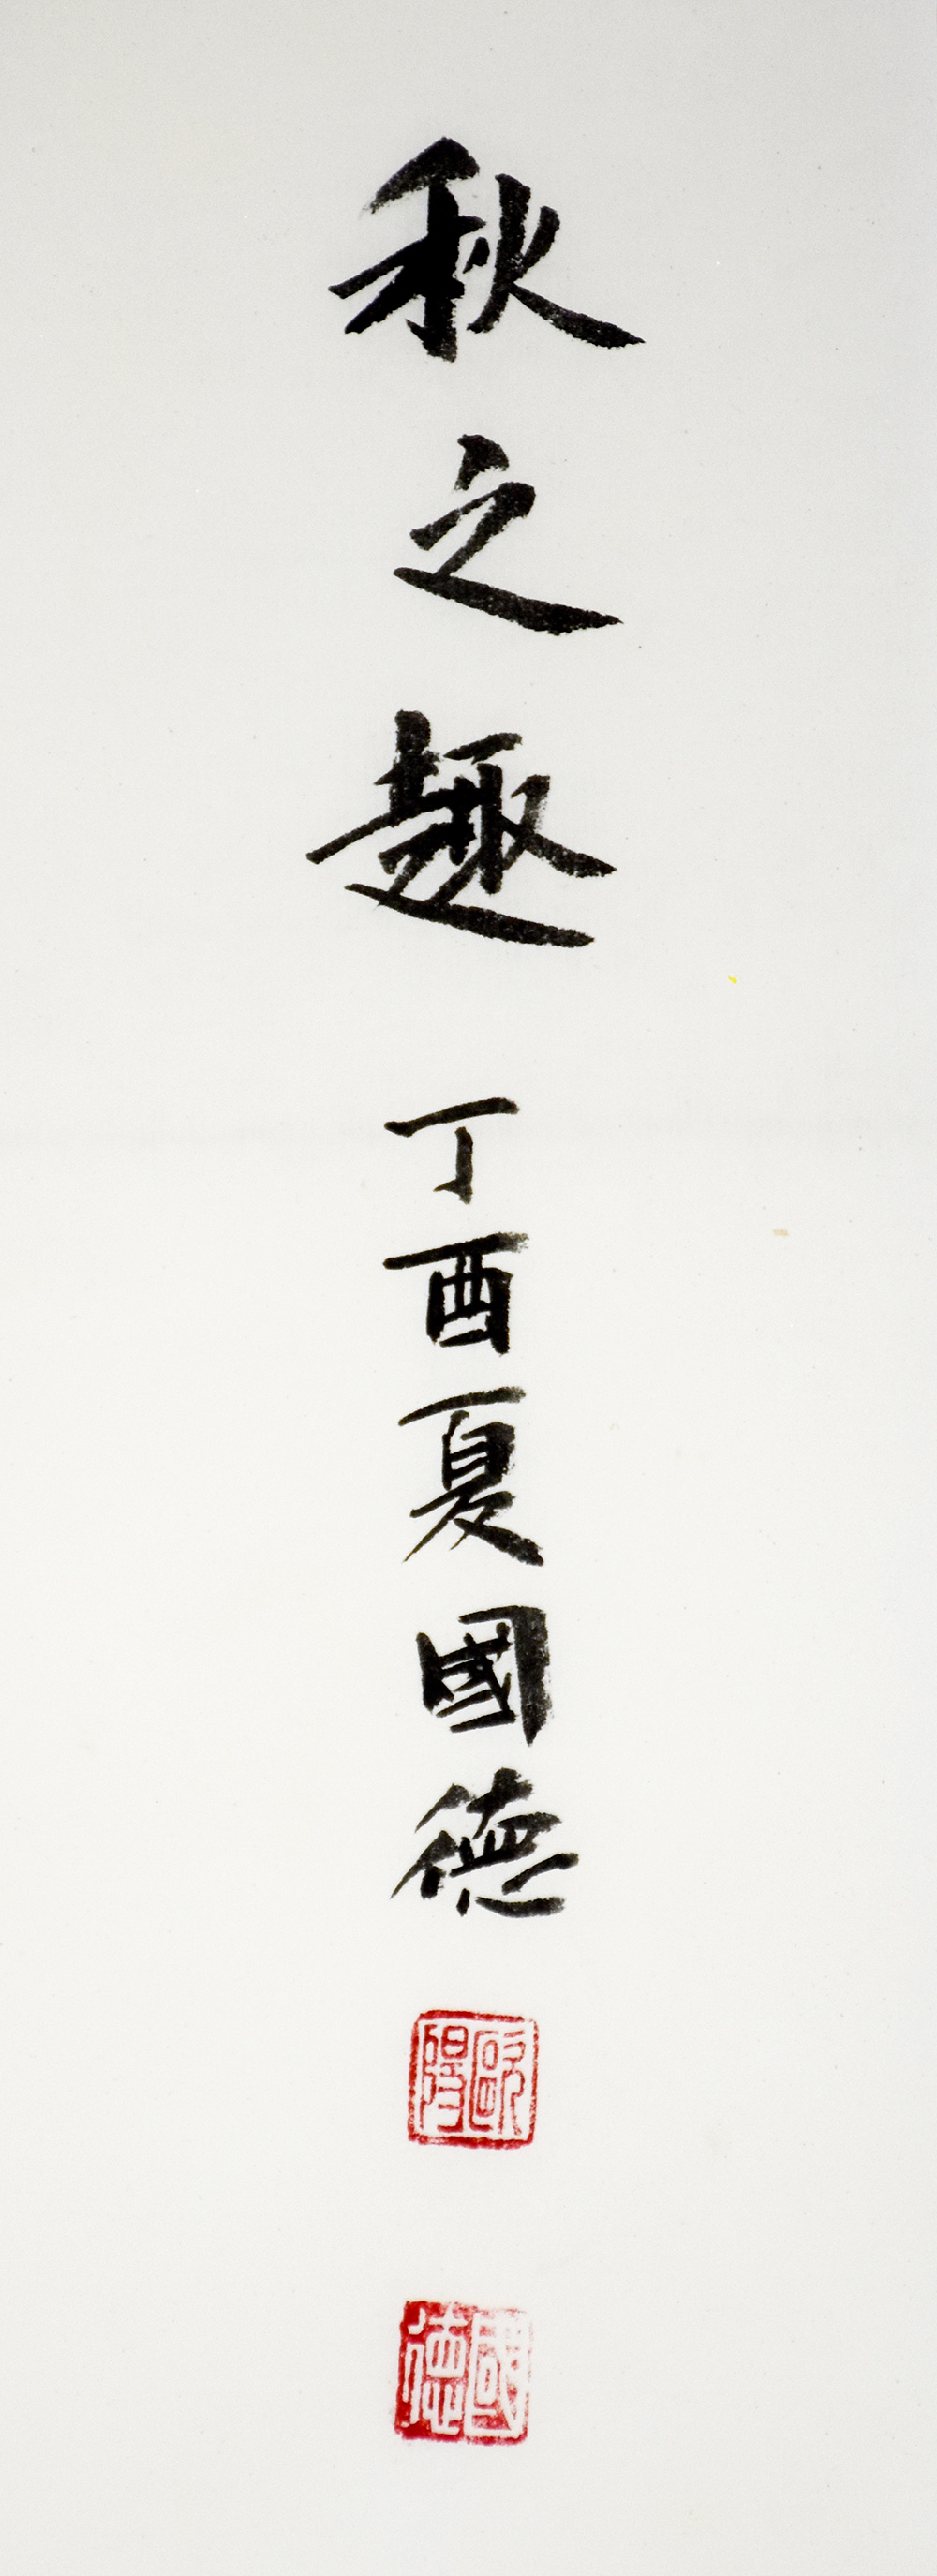 秋之趣 丁酉夏國德
歐陽
國德